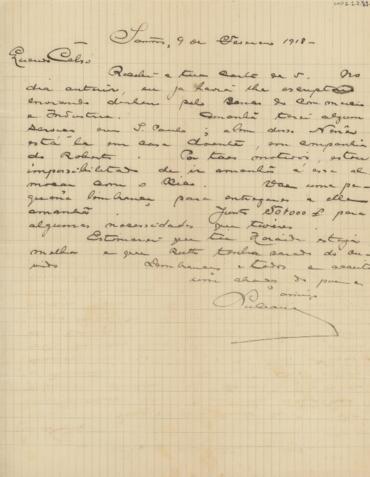 Santos, 9 de Fevereiro 1918 -
Querido Celso
Recebi a tua carta de 5. No
dia anterior, eu já havia lhe escripto
enviando dinheiro pelo Banco do Commercio
e Industria. Amanhã terei algum
serviço em S. Paulo e alem disso
está lá em casa doente, em companhia
do Roberto. Por taes motivos, estou
impossibilitado de ir amanhã á essa al-
moçar com o Vae uma pe-
quena lembrança para entregares a elle
amanhã. Junto 50$000 para
algumas necessidades que tiveres.
Estimarei que tia Zaida esteja
melhor e que Ruth tenha sarado do ou-
vido Lembranças a todos e acceite
um abraço do primo e
amigo